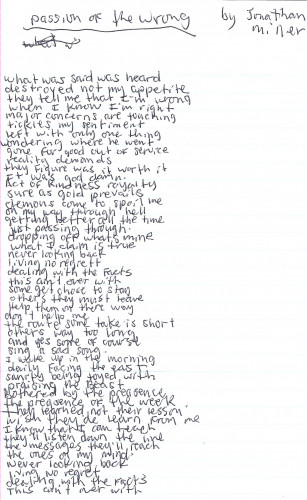 passion of the wrong
by Jonathan Miller
what was said was heard
destroyed not my appetite
they tell me that I'm wrong
when I know I'm right
major concerns are touching
tickles my sentiment
left with only one thing
wondering where he went
gone for good out of service
reality demands
they figure was it worth it
it was god damn.
Act of kindness royalty
sure as gold prevails
demons come to spoil me
on my way through hell
getting better all the time
Just passing through.
dropping off what's mine
what I claim is true
never looking back
living no regrett
dealing with the facts
this ain't over with
some get chose to stay
others they must leave
help them on there way
don't hello me
the route some take is short
others way too long
and yes some of course
sing a sad song.
I wake up in the morning
daily facing the east
sanity being toyed with
praising the beast
Bothered by the presence
the presence of the weak.
They learned not their lesson
wish they'de learn from me
I know that I can teach
they'll listen down the line
the messages they'll reach
the ones of my mind.
never looking back
living no regret
dealing with the facts
This ain't over with